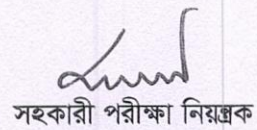 সহকারী পরীক্ষা নিয়ন্ত্রক